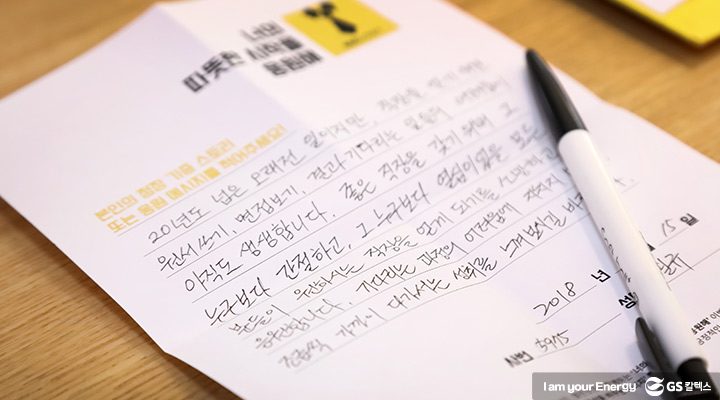 너의
따뜻한 시작을
응원해
본인의 정장 기증 스토리
또는 응원 메시지를 적어주세요!
20년도 넘은 오래전 일이지만, 직장을 얻기 위한
원서쓰기, 면접보기, 결과 기다리는 일들의
아직도 생생합니다. 좋은 직장을 갖기 위해 그
누구보다 간절하고, 그 누구보다 열심이었을 모든
분들이 원하시는 직장을 얻게 되기를
응원합니다. 기다리는 과정의 어려움에 지치지
조금씩 가까이 다가서는 성취를 느껴보시길
2018 년 15 일
성
사번
I am your Energy GS칼텍스